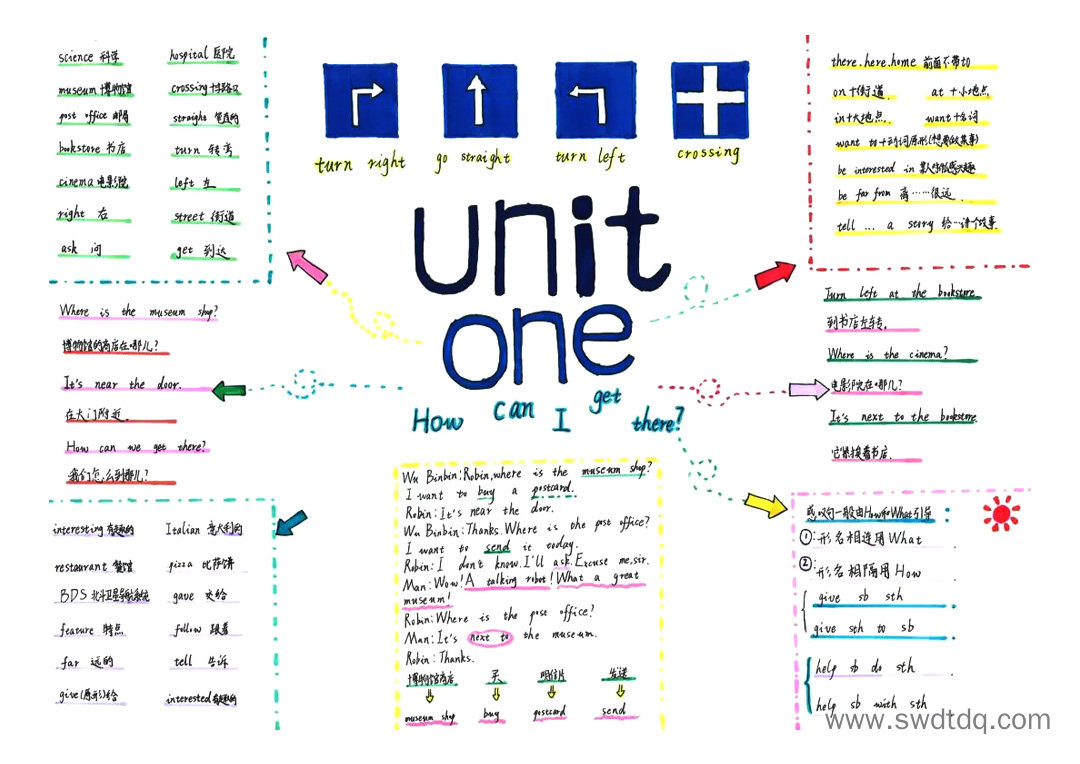 science 科学 hospital 医院
museum 博物馆 crossing 十字路口
post office 邮局 straight 笔直的
bookstore 书店 turn 转弯
cinema 电影院 left 左
right 右 street 街道
ask 问 get 到达
turn right
go straight
turn left
crossing
there.here.home 前面不带to
on+街道. at+小地点.
in+大地点. want+名词
want to+动词原形(想要做某事)
be interested in 某人对…感兴趣
be far from 离……很远.
tell ... a story 给…讲个故事.
unit
one
How can I get there?
Where is the museum shop?
博物馆的商店在哪儿?
It's near the door.
在大门附近.
How can we get there?
我们怎么到那儿?
Turn left at the bookstore.
到书店左转.
Where is the cinema?
电影院在哪儿?
It's next to the bookstore.
它紧挨着书店.
interesting 有趣的 Italian 意大利的
restaurant 餐馆 pizza 比萨饼
BDS 北斗卫星导航系统 gave 交给
feature 特点 follow 跟着
far 远的 tell 告诉
give(原形)给 interested 有趣的
Wu Binbin:Robin,where is the museum shop?
I want to buy a postcard.
Robin:It's near the door.
Wu Binbin:Thanks.Where is the post office?
I want to send it today.
Robin:I don't know.I'll ask.Excuse me,sir.
Man:Wow!A talking robot!What a great
museum!
Robin:Where is the post office?
Man:It's next to the museum.
Robin:Thanks.
博物馆商店 买 明信片 发送
museum shop buy postcard send
感叹句一般由How和What引导
①:形名相连用What
②:形名相隔用How
give sb sth
give sth to sb
help sb do sth
help sb with sth
www.swdtdq.com